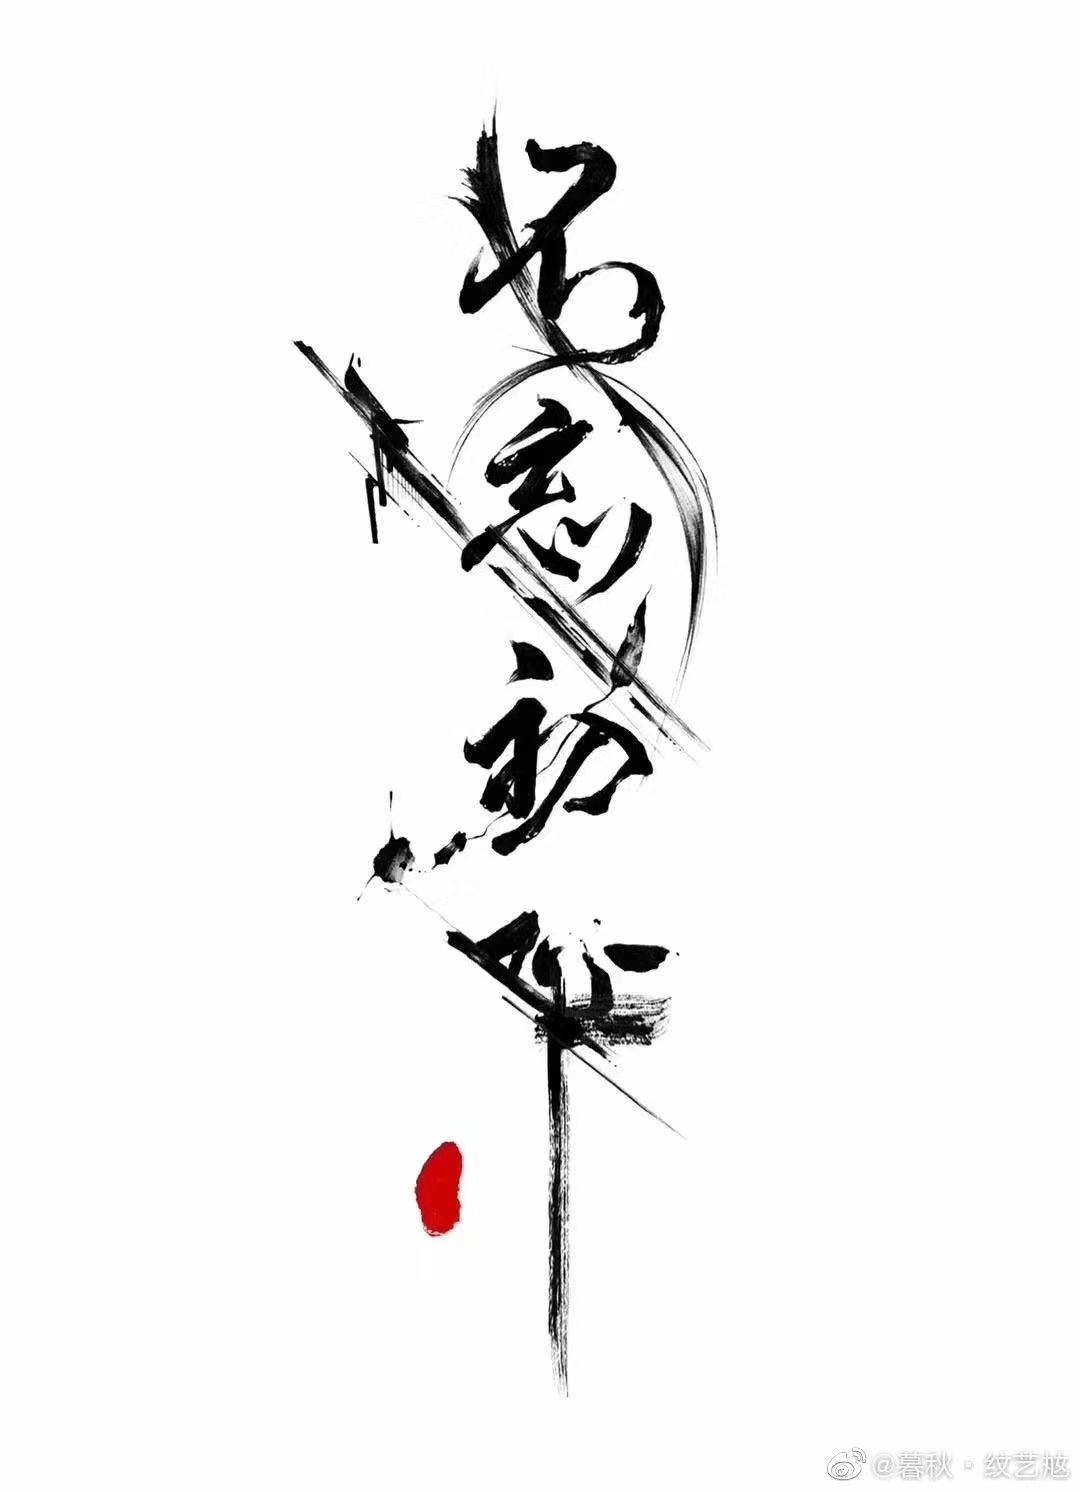 不忘初心
@暮秋·纹艺尨